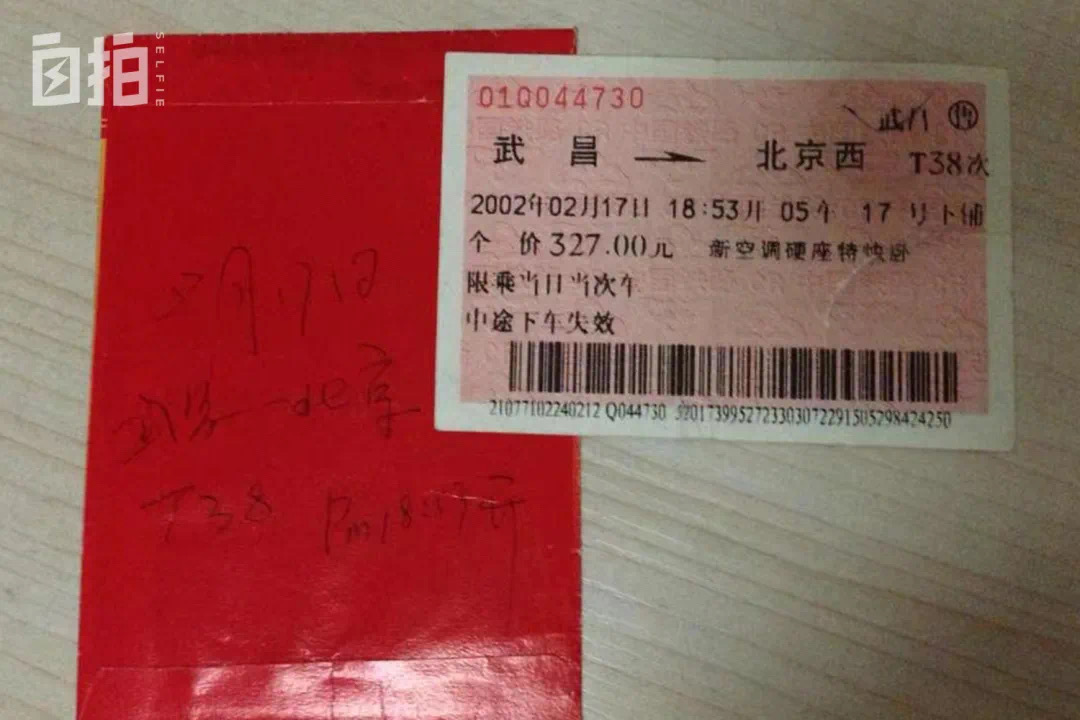 自拍
SELFIE
01Q044730
武昌 售
武 昌 → 北京西 T38次
2002年02月17日 18:53开 05车 17 号下铺
全 价327.00元 新空调硬座特快卧
限乘当日当次车
中途下车失效
21077102240212 Q044730 3201739952723303072291505298424250
2月17日
武昌—北京
T38 Pm18:53开